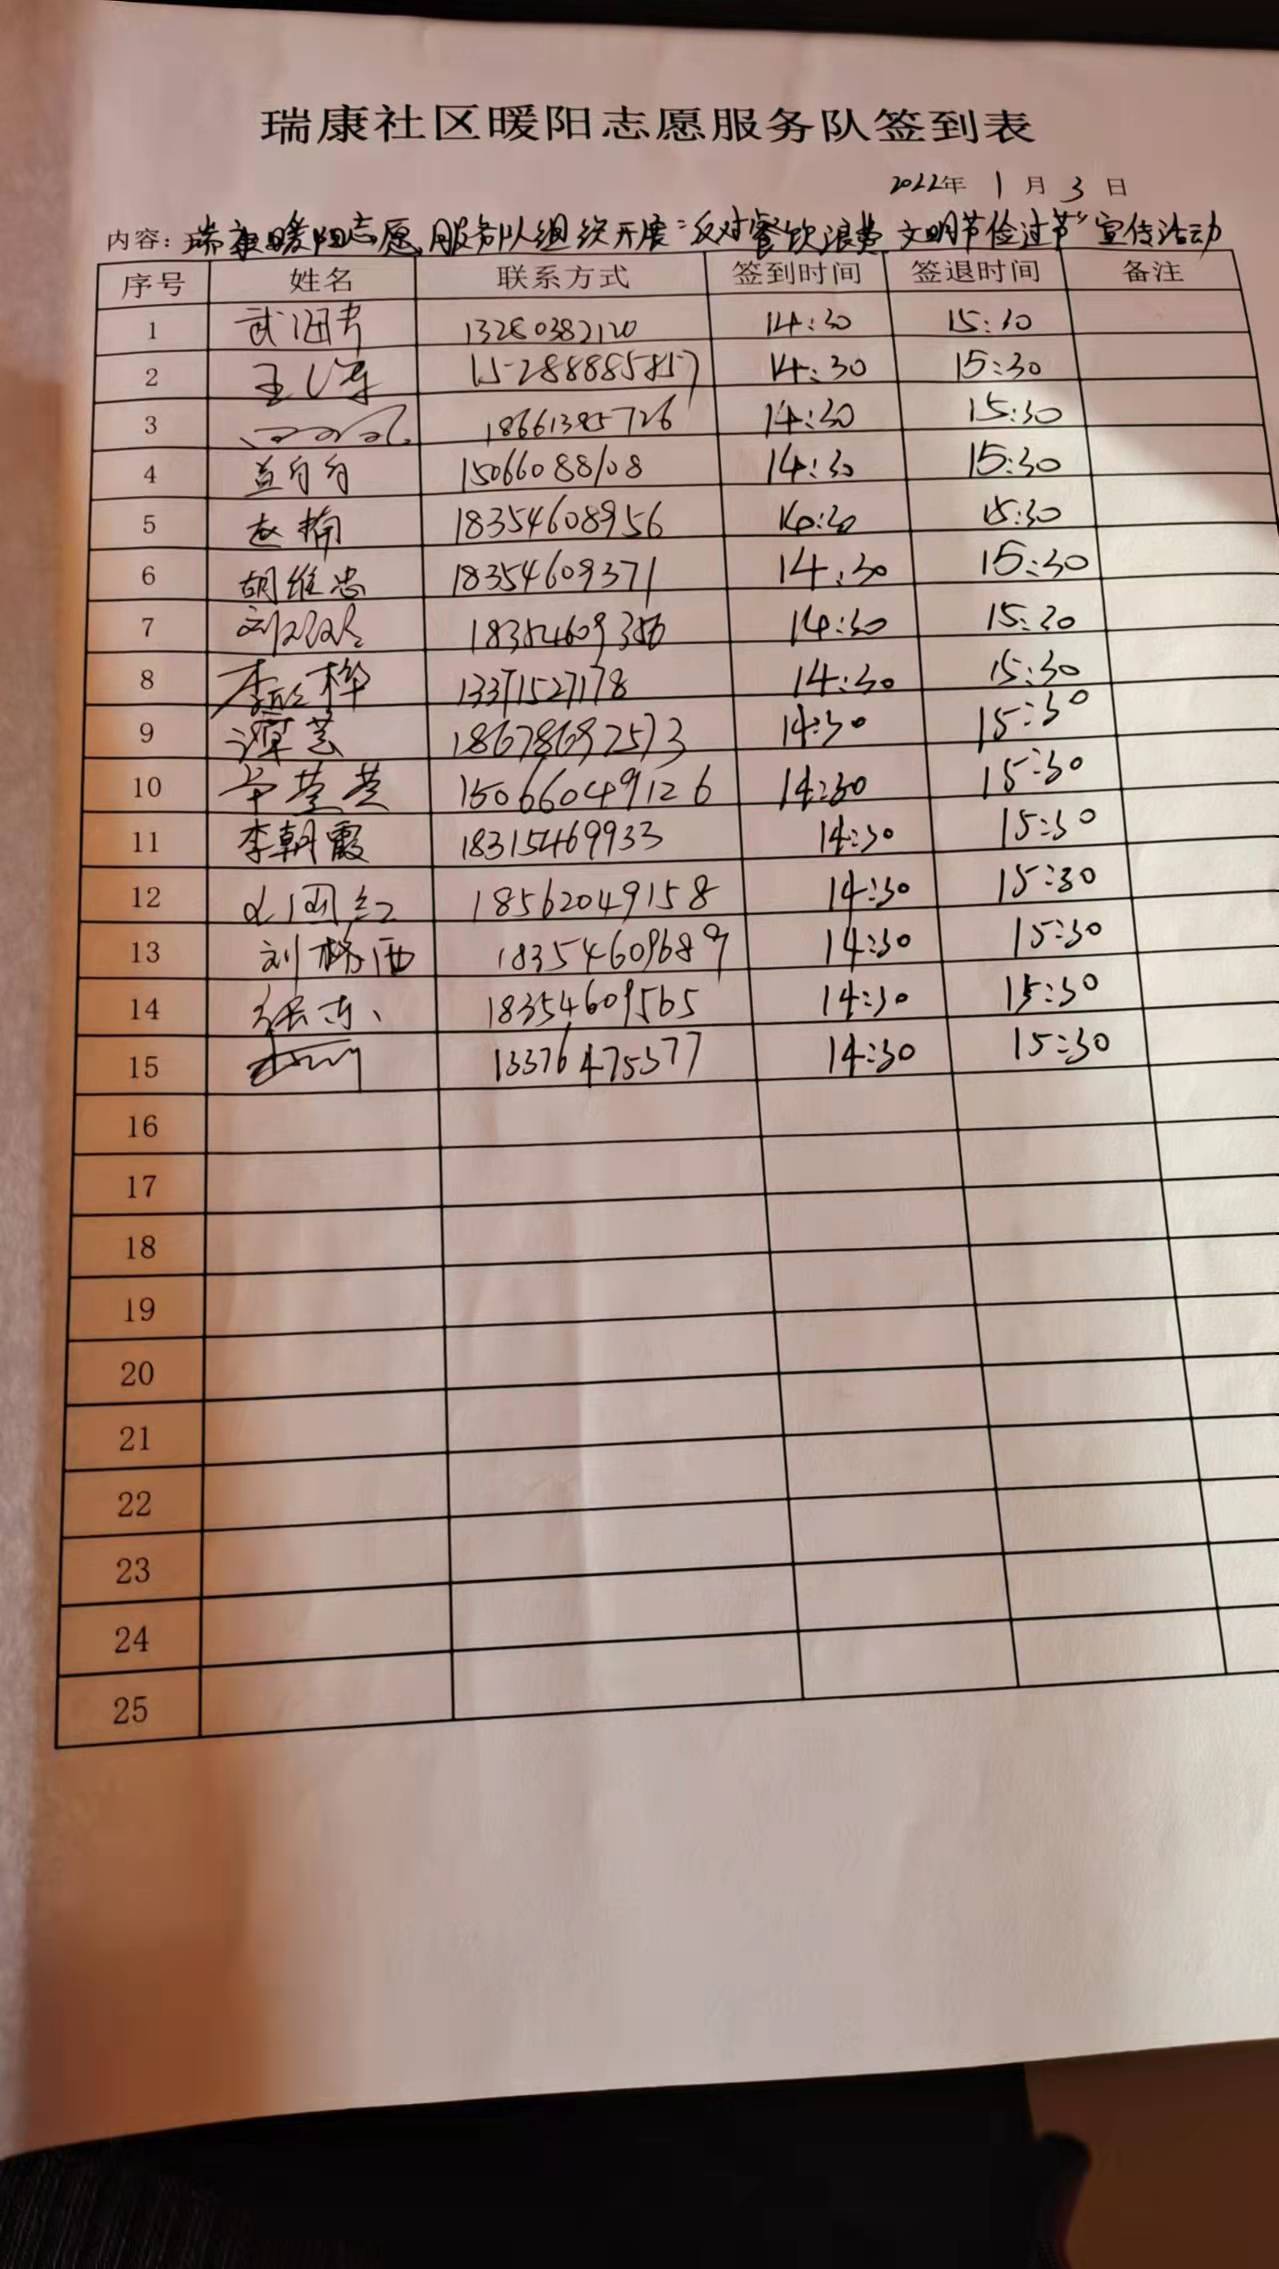 瑞康社区暖阳志愿服务队签到表
2022年 1 月 3 日
内容：瑞康暖阳志愿服务队组织开展"反对餐饮浪费 文明节俭过节"宣传活动
序号 姓名 联系方式 签到时间 签退时间 备注
1 13280382120 14:30 15:30
2 15288885857 14:30 15:30
3 18661385726 14:30 15:30
4 15066088108 14:30 15:30
5 赵楠 18354608956 14:30 15:30
6 胡维忠 18354609371 14:30 15:30
7 18354609356 14:30 15:30
8 13371527178 14:30 15:30
9 谭芸 18678692573 14:30 15:30
10 15066049126 14:30 15:30
11 李朝霞 18315469933 14:30 15:30
12 18562049158 14:30 15:30
13 18354609689 14:30 15:30
14 18354609565 14:30 15:30
15 13376475377 14:30 15:30
16
17
18
19
20
21
22
23
24
25